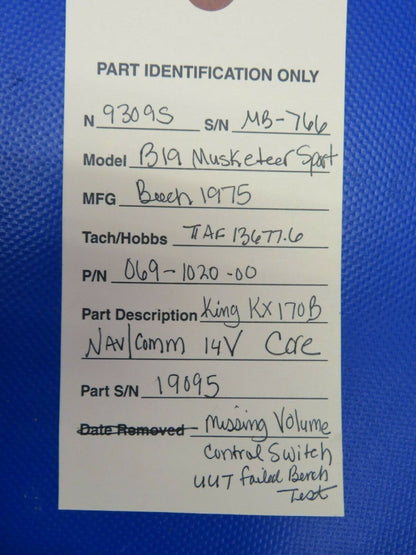 PART IDENTIFICATION ONLY
N 9309S S/N MB-766
Model B19 Musketeer Sport
MFG Beech 1975
Tach/Hobbs TTAF 13677.6
P/N 069-1020-00
Part Description King KX170B
NAV/Comm 14V Core
Part S/N 19095
Date Removed - Missing Volume
Control Switch
UUT Failed Bench
Test